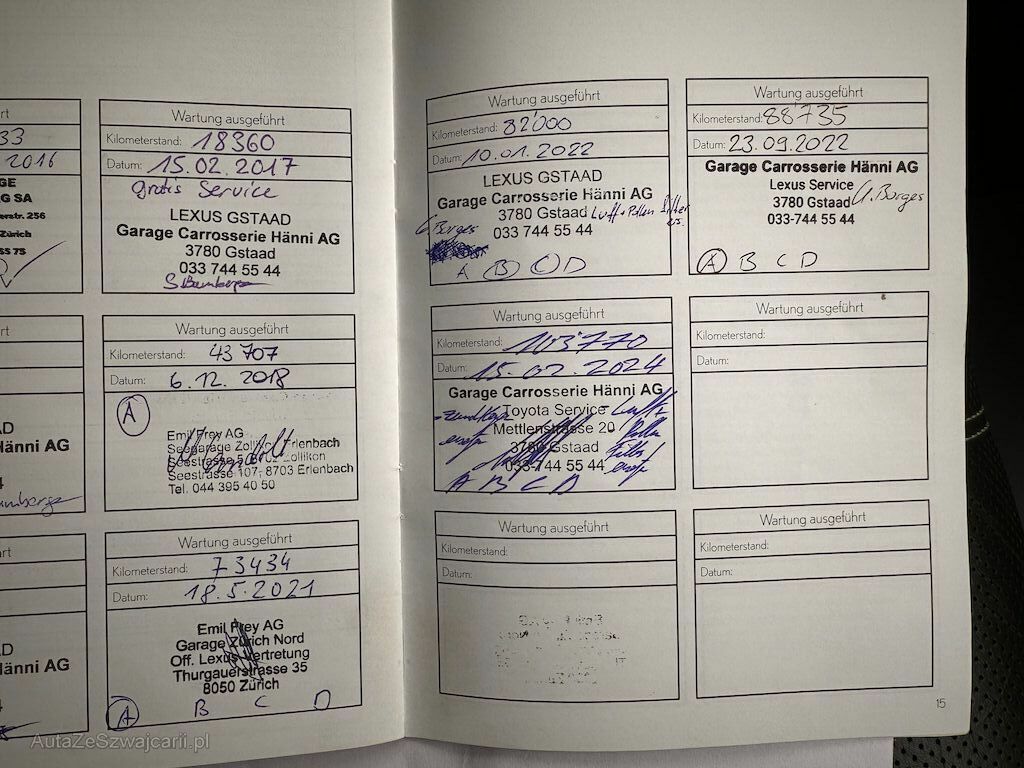 rt
33
2016
GE
G SA
erstr. 256
Zürich
55 75
Wartung ausgeführt
Kilometerstand: 18360
Datum: 15.02.2017
gratis Service
LEXUS GSTAAD
Garage Carrosserie Hänni AG
3780 Gstaad
033 744 55 44
rt
AD
Hänni AG
4
Wartung ausgeführt
Kilometerstand: 43 707
Datum: 6.12.2018
A
Emil Frey AG
Seegarage Zollikon Erlenbach
Seestrasse 5, 8702 Zollikon
Seestrasse 107, 8703 Erlenbach
Tel. 044 395 40 50
rt
AD
Hänni AG
4
Wartung ausgeführt
Kilometerstand: 73434
Datum: 18.5.2021
Emil Frey AG
Garage Zürich Nord
Off. Lexus Vertretung
Thurgauerstrasse 35
8050 Zürich
A B C D
Wartung ausgeführt
Kilometerstand: 82'000
Datum: 10.01.2022
LEXUS GSTAAD
Garage Carrosserie Hänni AG
3780 Gstaad Luft + Pollen Filter
Borges 033 744 55 44 ers.
A B C D
Wartung ausgeführt
Kilometerstand: 88'735
Datum: 23.09.2022
Garage Carrosserie Hänni AG
Lexus Service
3780 Gstaad Borges
033-744 55 44
A B C D
Wartung ausgeführt
Kilometerstand: 103'770
Datum: 15.02.2024
Garage Carrosserie Hänni AG
Toyota Service Luft +
Mettlenstrasse 20 Pollen
3780 Gstaad Filter
033-744 55 44
A B C D
Wartung ausgeführt
Kilometerstand:
Datum:
Wartung ausgeführt
Kilometerstand:
Datum:
Wartung ausgeführt
Kilometerstand:
Datum:
15
AutaZeSzwajcarii.pl